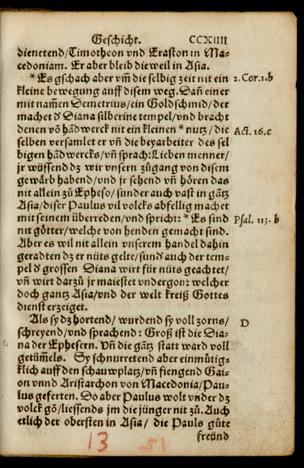 Geschicht. CCXIIII
dienetend/Timotheon vnd Eraston in Ma-
cedoniam. Er aber bleib die weil in Asia.
*Es gschach aber vm̃ die selbig zeit nit ein 2. Cor.1.b
kleine bewegung auff disem weg. Dañ einer
mit nam̃en Demetrius/ein Goldschmid/der
machet d͛ Diana silberine tempel/vnd bracht
denen vō hādwerck nit ein kleinen *nutz/die Act. 16.c
selben versamlet er vñ die beyarbeiter des sel
bigen hādwercks/vñ sprach: Lieben menner/
jr wüssend dz wir vnsern zůgang von disem
gewårb habend/vnd jr sehend vñ hören das
nit allein zů Epheso/sunder auch vast in gātz
Asia/diser Paulus vil volcks abfellig machet
mit seinem überreden/vnd spricht: *Es sind Psal. 113. b
nit götter/welche von henden gemacht sind.
Aber es wil nit allein vnserem handel dahin
geradten dz er nüts gelte/sund͛ auch der tem-
pel d͛ grossen Diana wirt für nüts geachtet/
vñ wirt darzů jr maiestet vndergon: welcher
doch gantz Asia/vnd der welt kreiß Gottes
dienst erzeiget.
Als sy dz hortend/wurdend sy voll zorns/ D
schreyend/vnd sprachend: Groß ist die Dia-
na der Ephesern. Vñ die gātz statt ward voll
getüm̃els. Sy schnurretend aber einmůtig-
klich auff den schauwplatz/vñ fiengend Gai-
on vnnd Aristarchon von Macedonia/Pau-
lus geferten. Do aber Paulus wolt vnder dz
volck gō/liessends jm die jünger nit zů. Auch
etlich der obersten in Asia/ die Pauls gůte
freünd
13